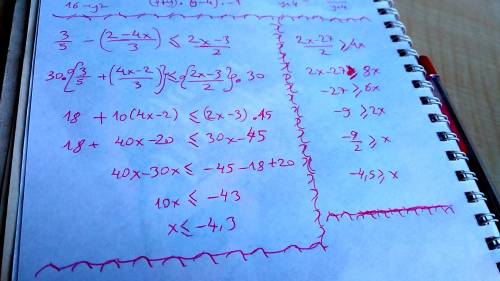 16-y²
3/5 - (2-4x)/3 ≤ (2x-3)/2
30·{3/5 + (4x-2)/3} ≤ {(2x-3)/2}·30
18 + 10(4x-2) ≤ (2x-3)·15
18 + 40x-20 ≤ 30x-45
40x-30x ≤ -45-18+20
10x ≤ -43
x ≤ -4,3
(2x-27)/2 ≥ 4x
2x-27 ≥ 8x
-27 ≥ 6x
-9 ≥ 2x
-9/2 ≥ x
-4,5 ≥ x